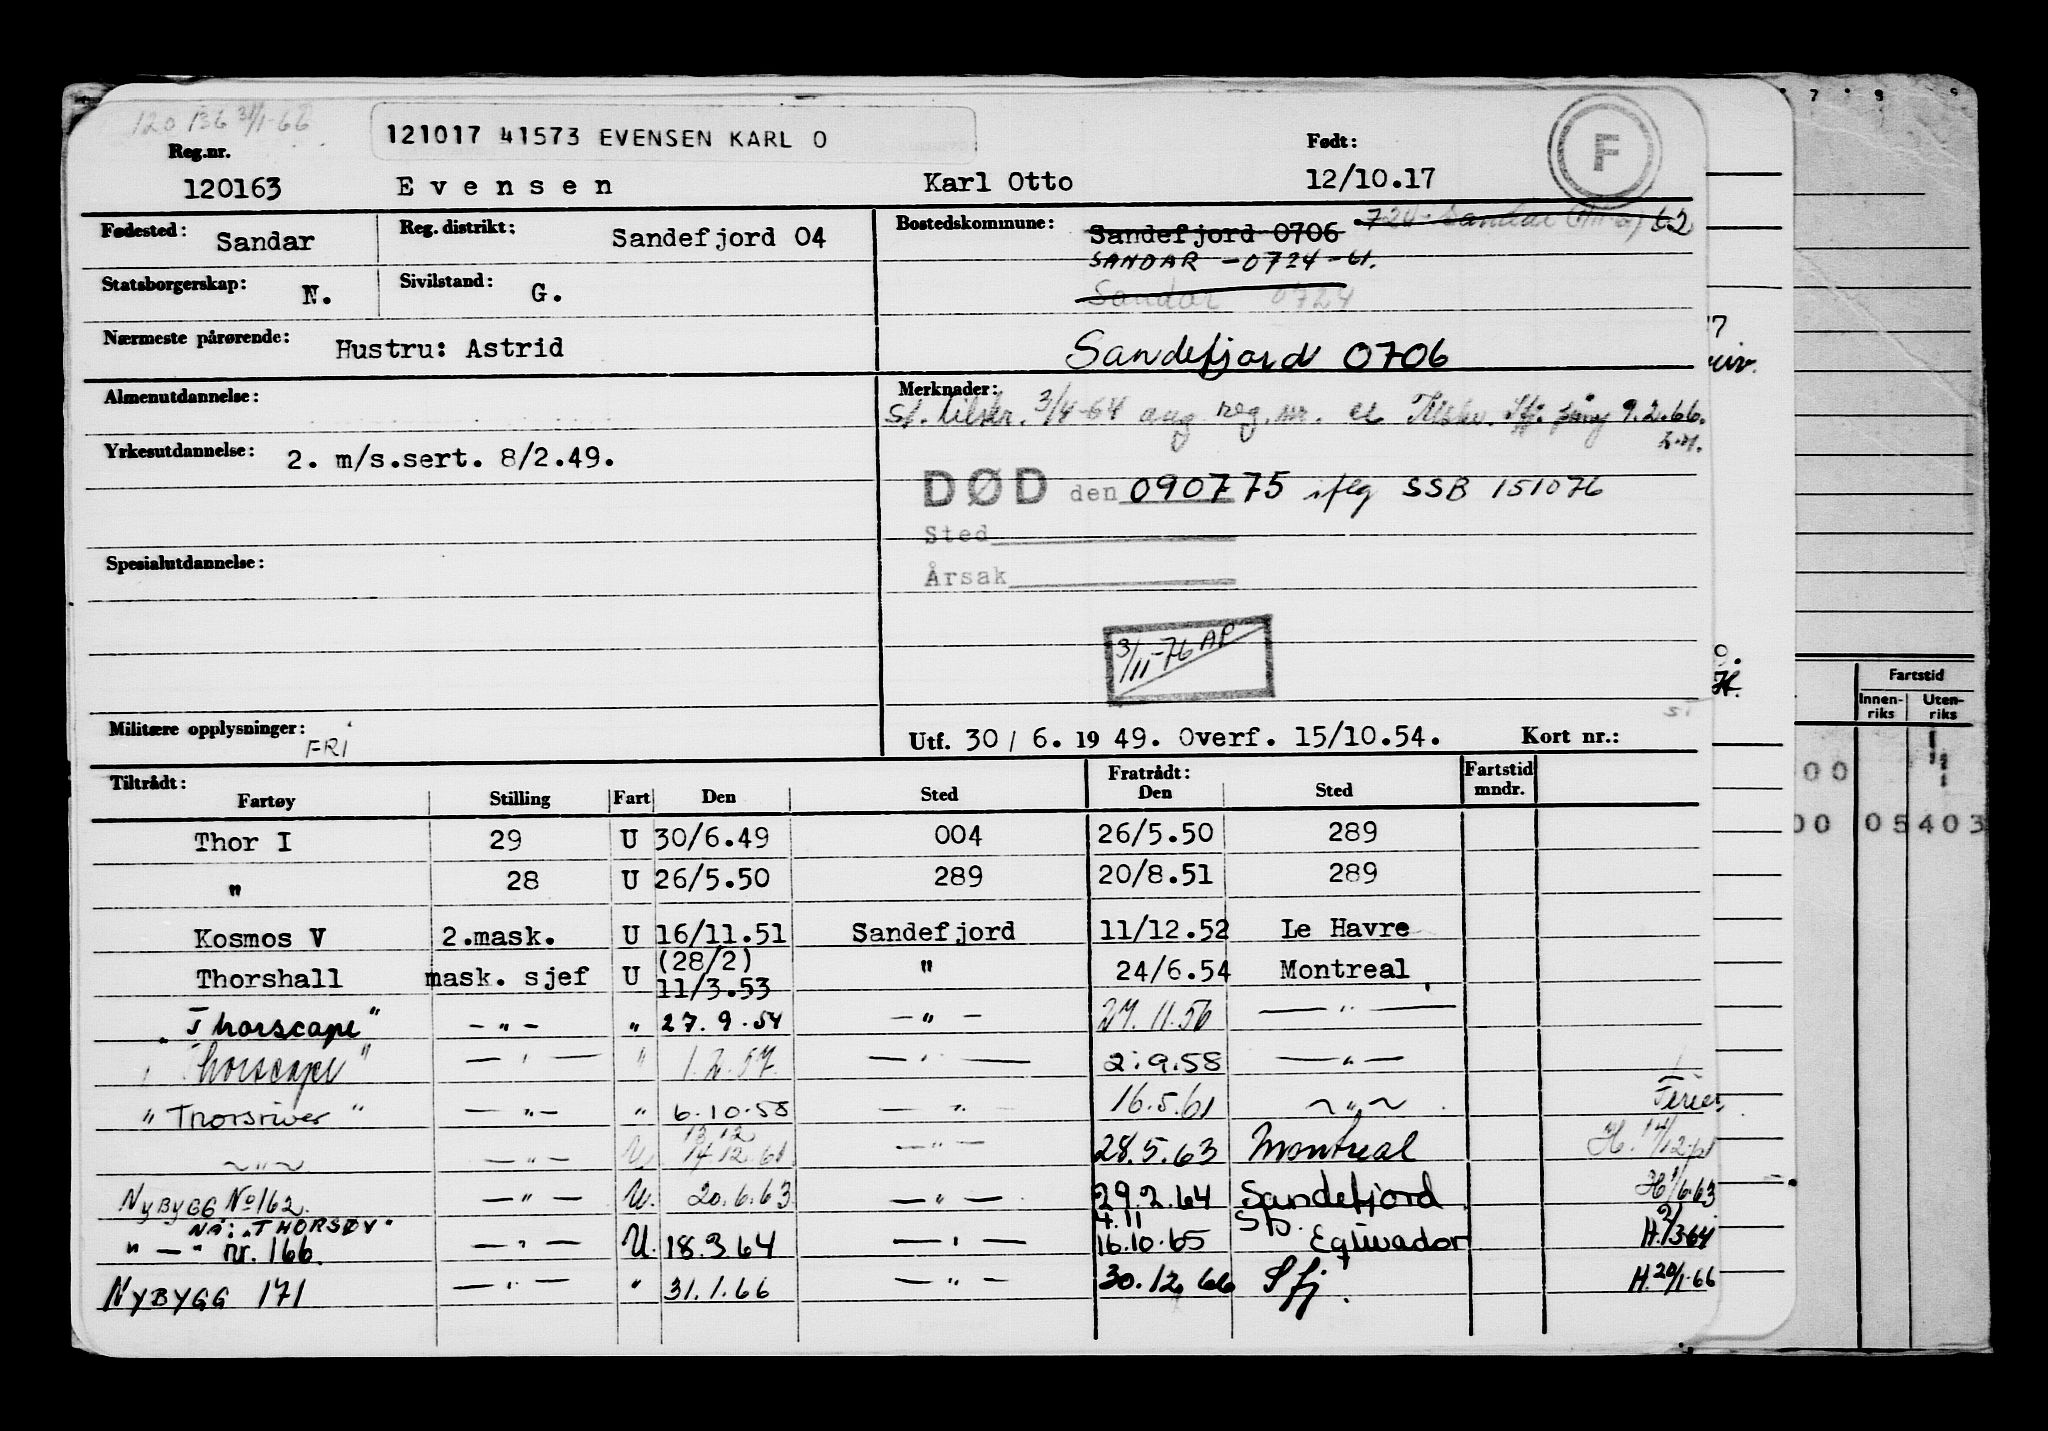 120 136 31/1-66
121017 41573 EVENSEN KARL O
Reg.nr. Født:
120163 Evensen Karl Otto 12/10.17 F
Fødested: Sandar Reg. distrikt: Sandefjord 04 Bostedskommune: Sandefjord 0706 724 Sandar 62
SANDAR - 0724 - 61.
Statsborgerskap: N. Sivilstand: G. Sandar 0724
Nærmeste pårørende: Hustru: Astrid Sandefjord 0706
Almenutdannelse: Merknader: tilskr. 3/4-64 ang reg.nr. Tilskr. Sfj. 9.2.66.
Yrkesutdannelse: 2. m/s.sert. 8/2.49.
DØD den 090775 iflg SSB 151076
Sted
Spesialutdannelse: Årsak
3/11-76 AP
Militære opplysninger: FRI Utf. 30/6. 1949. Overf. 15/10.54. Kort nr.:
Tiltrådt: Fratrådt: Fartstid
Fartøy Stilling Fart Den Sted Den Sted mndr.
Thor I 29 U 30/6.49 004 26/5.50 289
" 28 U 26/5.50 289 20/8.51 289
Kosmos V 2.mask. U 16/11.51 Sandefjord 11/12.52 Le Havre
(28/2)
Thorshall mask. sjef U 11/3.53 " 24/6.54 Montreal
"Thorscape" - " - " 27.9.54 - " - 27.11.56 - " -
"Thorscape" - " - " 1.2.57. - " - 2.9.58 - " -
"Thorsriver" - " - " 6.10.58 - " - 16.5.61 ~ " ~ Ferier
13.12
~ " ~ - " - U 14.12.61 - " - 28.5.63 Montreal H. 14/12
NYBYGG No 162. - " - U. 20.6.63 - " - 29.2.64 Sandefjord H 1/6.63
NÅ: "THORSØY" 4.11
" - " nr. 166. - " - U. 18.3.64 - " - 16.10.65 Equador H. 2/3-64
NYBYGG 171 - " - " 31.1.66 - " - 30.12.66 Sfj. H. 20/1-66
Fartstid
Innen-riks Uten-riks
00
00 05403